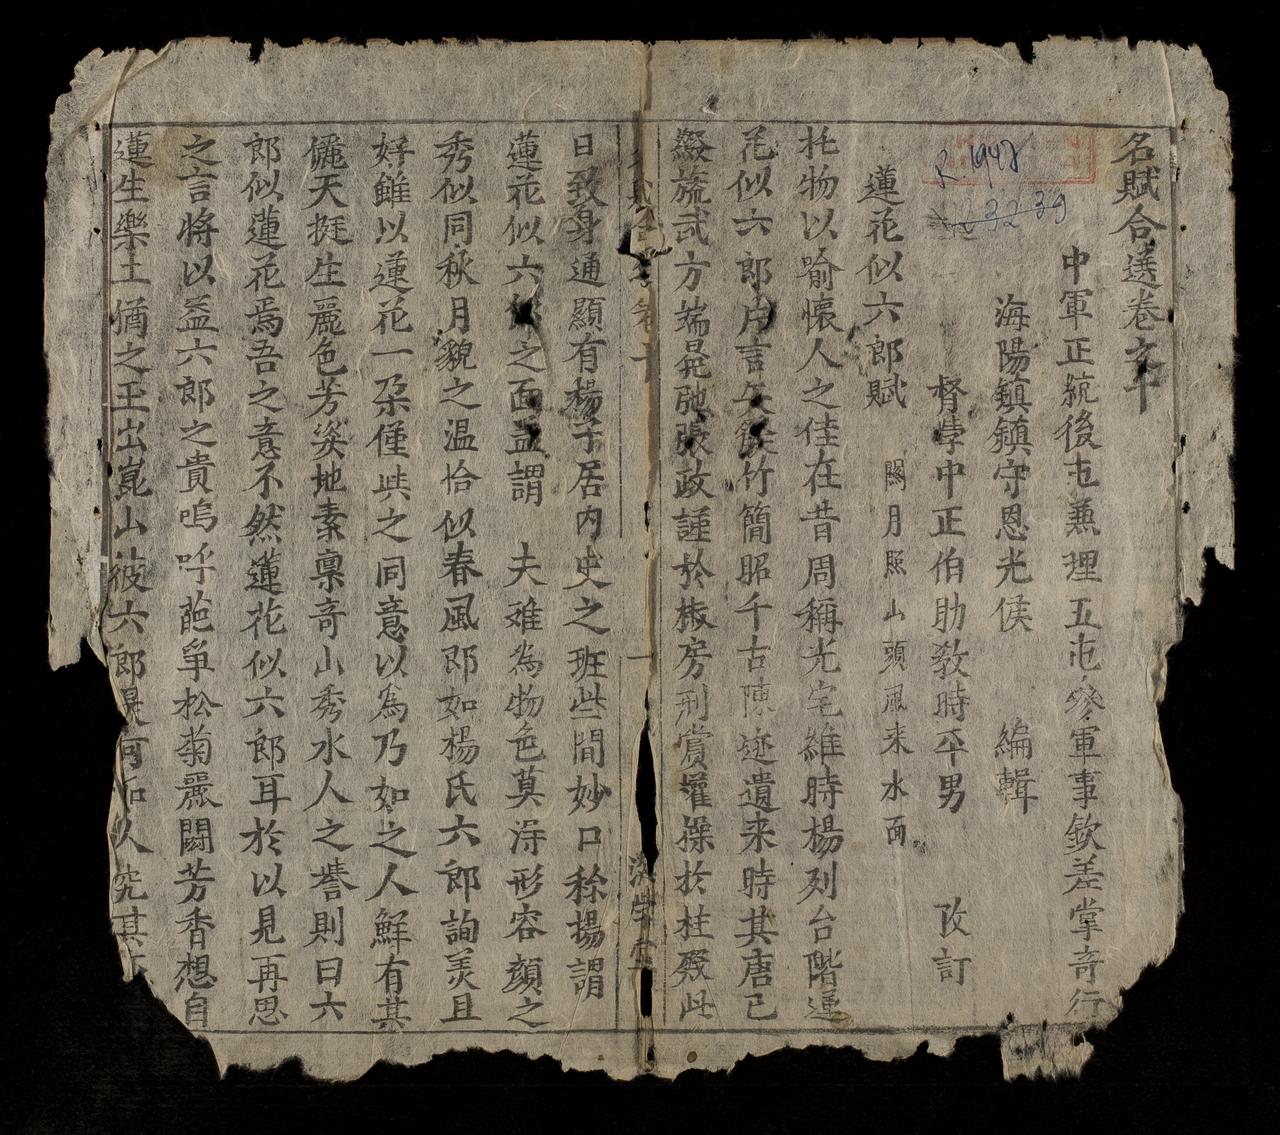 名賦合選卷之下
中軍正統後屯兼理五屯參軍事欽差掌奇行
海陽鎮鎮守恩光侯 編輯
督學中正伯助教時平男 改訂
R.1947
3239
蓮花似六郎賦 闕月照山頭風来水面
托物以喻懷人之佳在昔周稱光宅維時楊列台階運
花似六郎片言矢餘竹簡昭千古陳迹遺来時其唐已
綴旒武方端扆弛張政謹於椒房刑賞權操於桂殿此
日致身通顯有楊子居內史之班些間妙口稱揚謂
蓮花似六郎之面盖謂 夫难為物色莫淂形容顏之
秀似同秋月貌之温恰似春風郎如楊氏六郎詢羙且
好雖以蓮花一朶僅與之同意以為乃如之人鮮有其
儷天挺生麗色芳淡地素禀竒山秀水人之譽則曰六
郎似蓮花焉吾之意不然蓮花似六郎耳於以見再思
之言將以益六郎之貴嗚呼葩爭松菊麗闘芳香想自
蓮生樂土猶之玉出崑山彼六郎 何 人究其